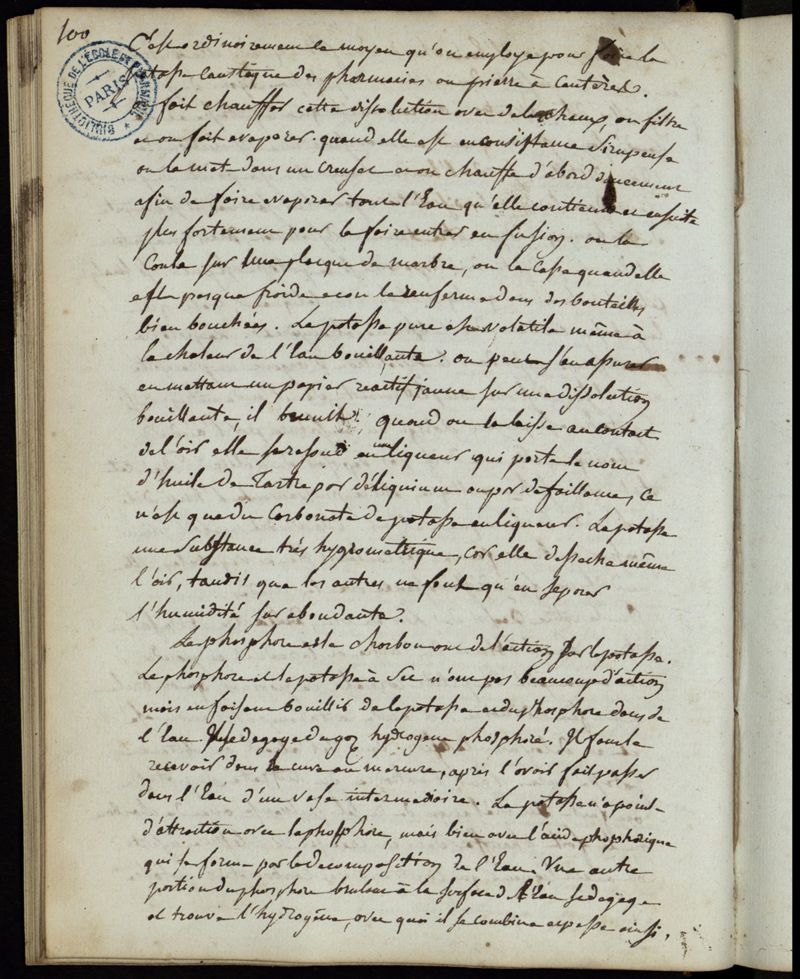 100
BIBLIOTHÈQUE DE L'ÉCOLE DE PHARMACIE
PARIS
C'est ordinairement le moyen qu'on employe pour faire la
potasse caustique des pharmacies ou pierre à cautères.
fait chauffer cette dissolution avec de la chaux, on filtre
et on fait evaporer. quand elle est en consistance Sirupeuse
on la met dans un creuset et on chauffe d'abord doucement
afin de faire evaporer toute l'Eau qu'elle contient et ensuite
plus fortement pour la faire entrer en fusion. on la
Coule sur une plaque de marbre, on la casse quand elle
est presque froide et on la renferme dans des bouteilles
bien bouchées. La potasse pure est volatile même à
la chaleur de l'Eau bouillante. on peut s'en assurer
en mettant un papier reactif jaune sur une dissolution
bouillante, il brunit; quand on la laisse au contact
de l'air elle se resout en une liqueur qui porte le nom
d'huile de Tartre par déliquium ou par defaillance, ce
n'est que du Carbonate de potasse en liqueur. La potasse
une substance très hygrometrique, car elle desseche même
l'air, tandis que les autres ne font qu'en separer
l'humidité surabondante.
Le phosphore et le charbon ont de l'action sur la potasse.
Le phosphore et la potasse à Sec n'ont pas beaucoup d'action
mais en faisant bouillir de la potasse et du phosphore dans de
l'Eau Il se degage du gaz hydrogene phosphoré. Il faut le
recevoir dans la cuve au mercure, après l'avoir fait passer
dans l'Eau d'un vase intermediaire. La potasse n'a point
d'attraction avec le phosphore, mais bien avec l'acide phosphorique
qui se forme par la decomposition de l'Eau. Une autre
portion du phosphore brulant à la surface de l'Eau se degage
et trouve l'hydrogène, avec qui il se combine et passe ainsi,